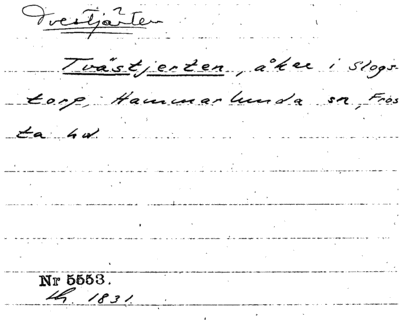 Tvestjärten
Tvästjerten, åker i Slogs-
torp, Hammarlunda sn, Fros
ta hd.
Nr 5553.
1831.